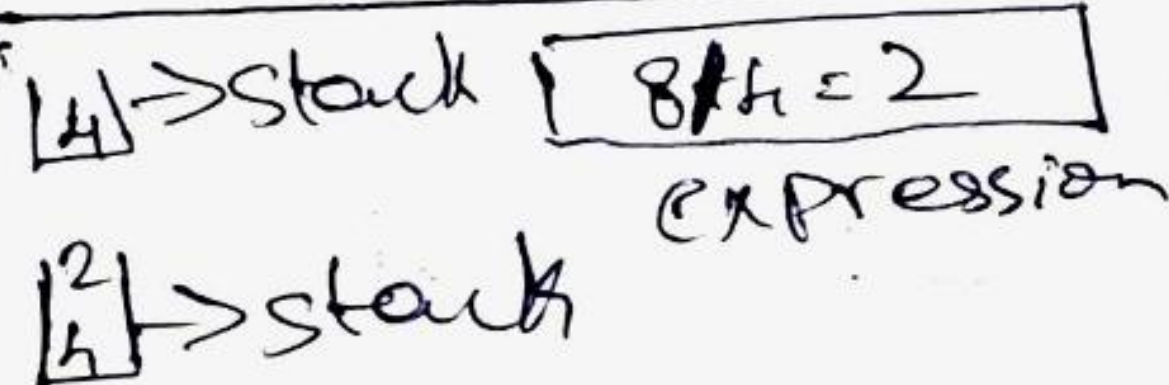 4 → stack 8/4 = 2
expression
2 → stack
4